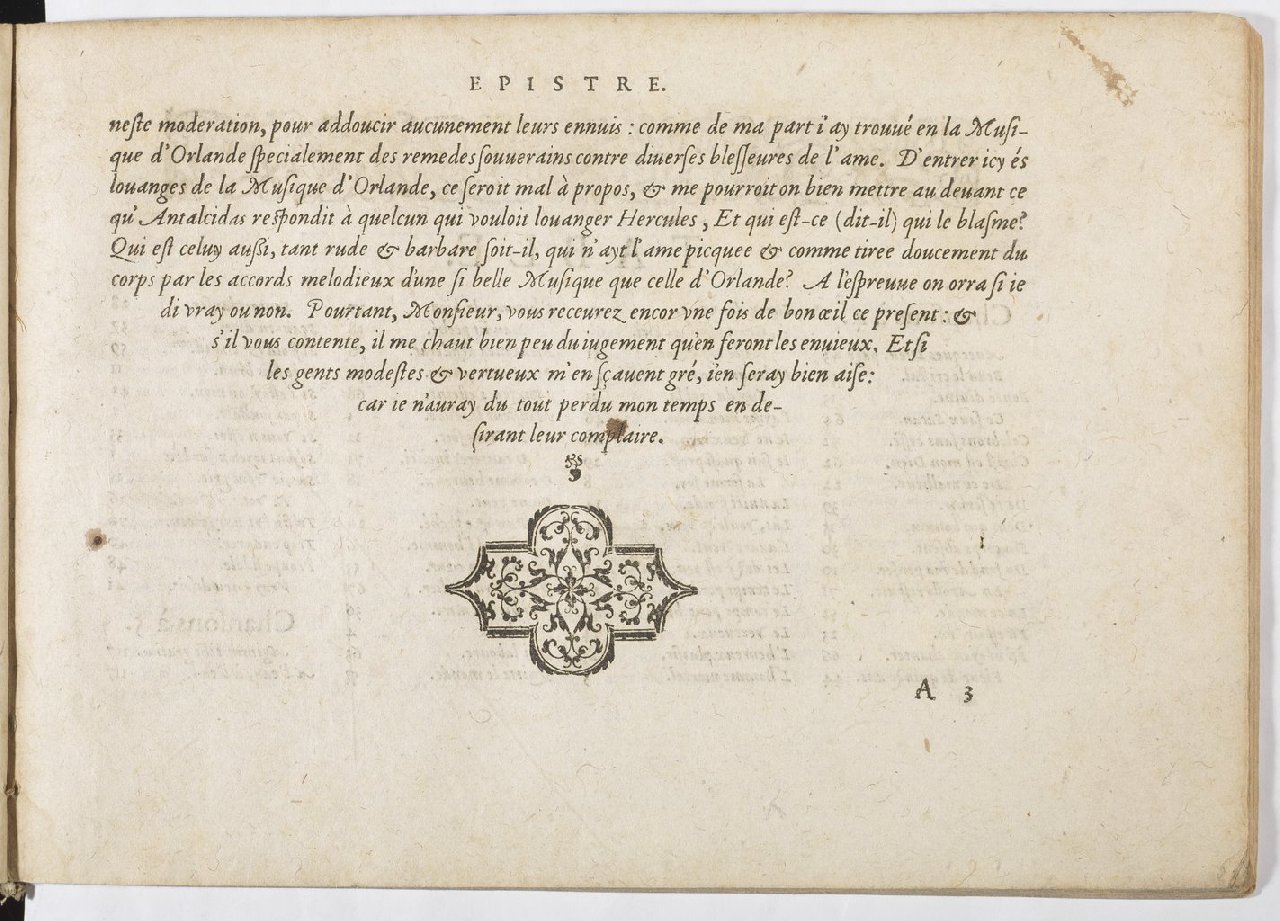 EPISTRE.
neste moderation, pour addoucir aucunement leurs ennuis : comme de ma part i'ay trouué en la Musi-
que d'Orlande specialement des remedes souuerains contre diuerses blesseures de l'ame. D'entrer icy és
louanges de la Musique d'Orlande, ce seroit mal à propos, & me pourroit on bien mettre au deuant ce
qu'Antalcidas respondit à quelcun qui vouloit louanger Hercules, Et qui est-ce (dit-il) qui le blasme?
Qui est celuy aussi, tant rude & barbare soit-il, qui n'ayt l'ame picquee & comme tiree doucement du
corps par les accords melodieux d'une si belle Musique que celle d'Orlande? A l'espreuue on orra si ie
di vray ou non. Pourtant, Monsieur, vous receurez encor vne fois de bon œil ce present : &
s'il vous contente, il me chaut bien peu du iugement qu'en feront les enuieux. Et si
les gents modestes & vertueux m'en sçauent gré, i'en seray bien aise:
car ie n'auray du tout perdu mon temps en de-
sirant leur complaire.
A 3